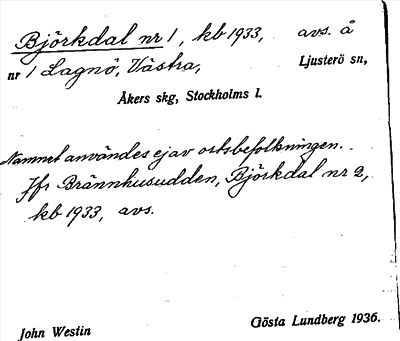 Björkdal nr 1, kb 1933, avs. å
nr 1 Lagnö, Västra, Ljusterö sn,
Åkers skg, Stockholms l.
Namnet användes ej av ortsbefolkningen.
Jfr Brännhusudden, Björkdal nr 2,
kb 1933, avs.
John Westin Gösta Lundberg 1936.